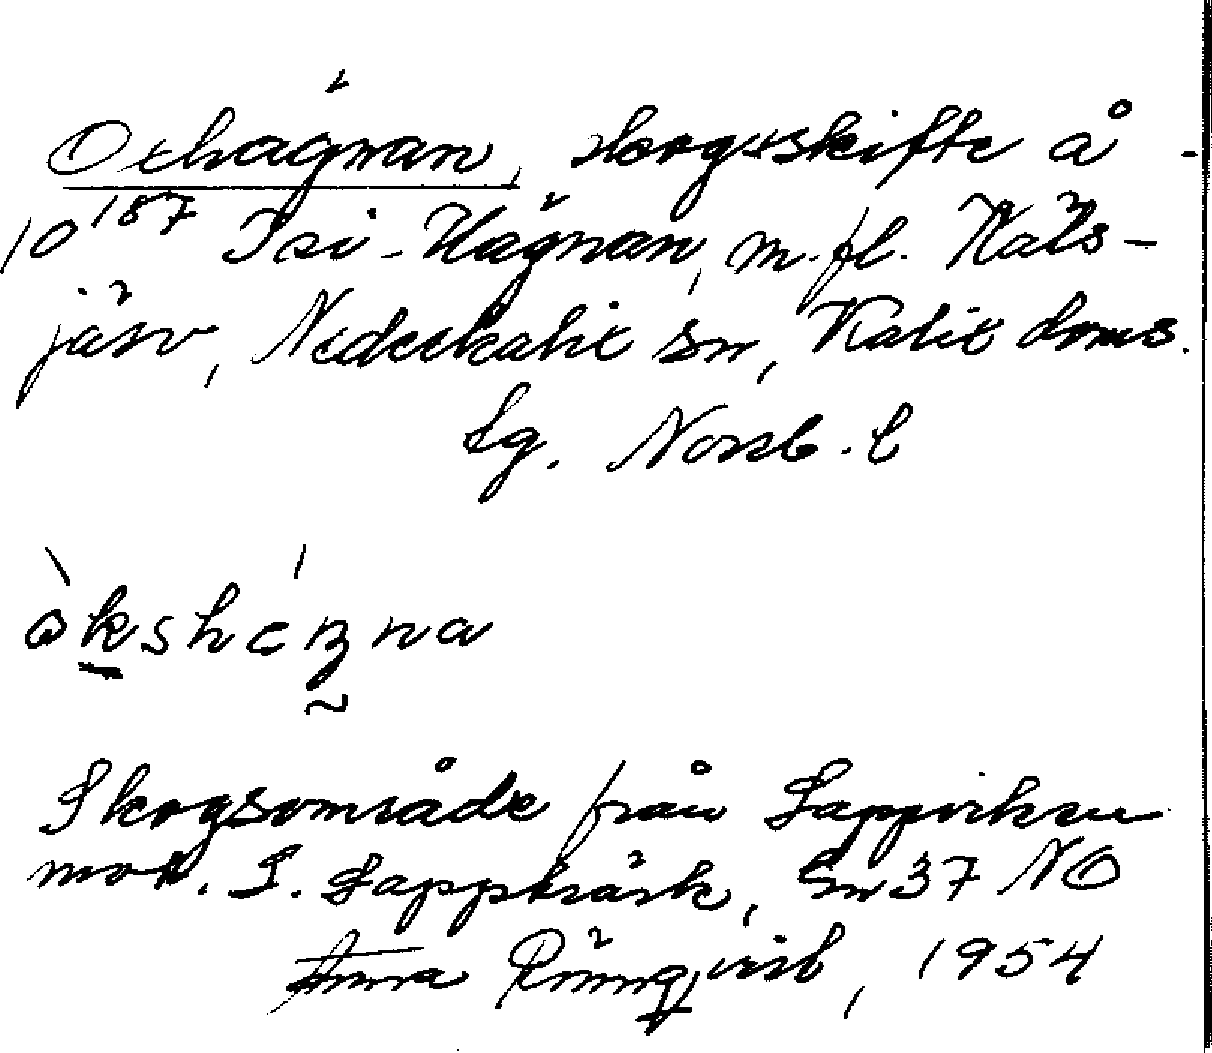 Oxhägnan, skogsskifte å
10¹⁸⁷ Isi-Hägnan, m.fl. Räks-
järv, Nederkalix sn, Kalix doms.
lg. Norrb. l
òkshɛ́ʒna
Skogsområde från
mot. S. Lappträsk, Sn 37 NO
Anna Rönnqvist, 1954